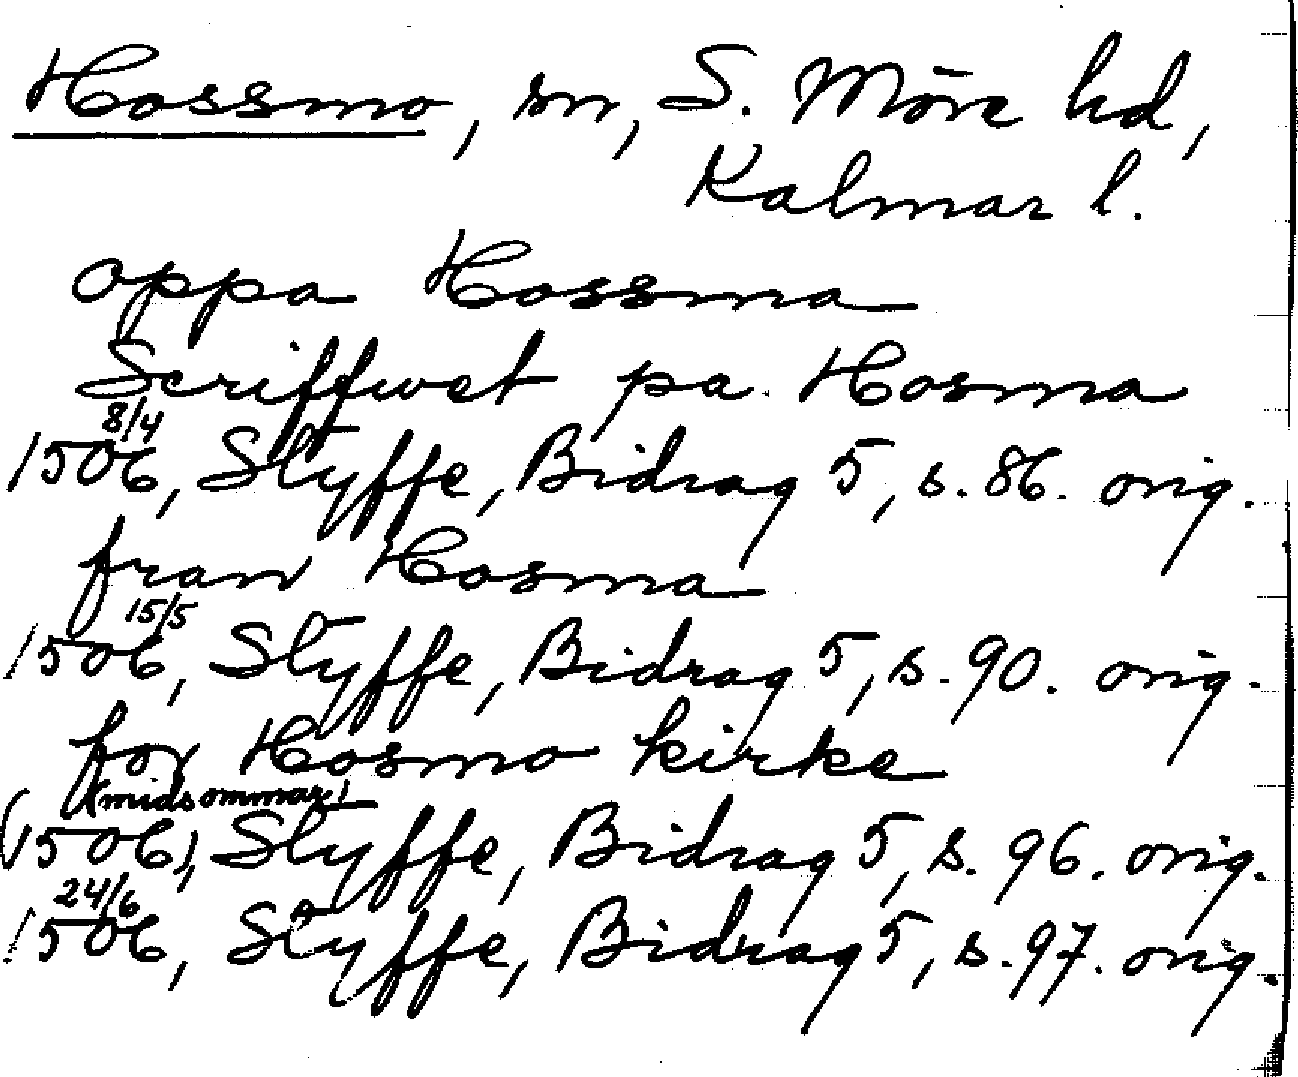 Hossmo, sn, S. Möre hd,
Kalmar l.
oppa Hossma
Scriffwet pa Hosma
8/4
1506, Styffe, Bidrag 5, s. 86. orig.
fran Hosma
15/5
1506, Styffe, Bidrag 5, s. 90. orig.
for Hosmo kirke
(midsommar)
(1506), Styffe, Bidrag 5, s. 96. orig.
24/6
1506, Styffe, Bidrag 5, s. 97. orig.